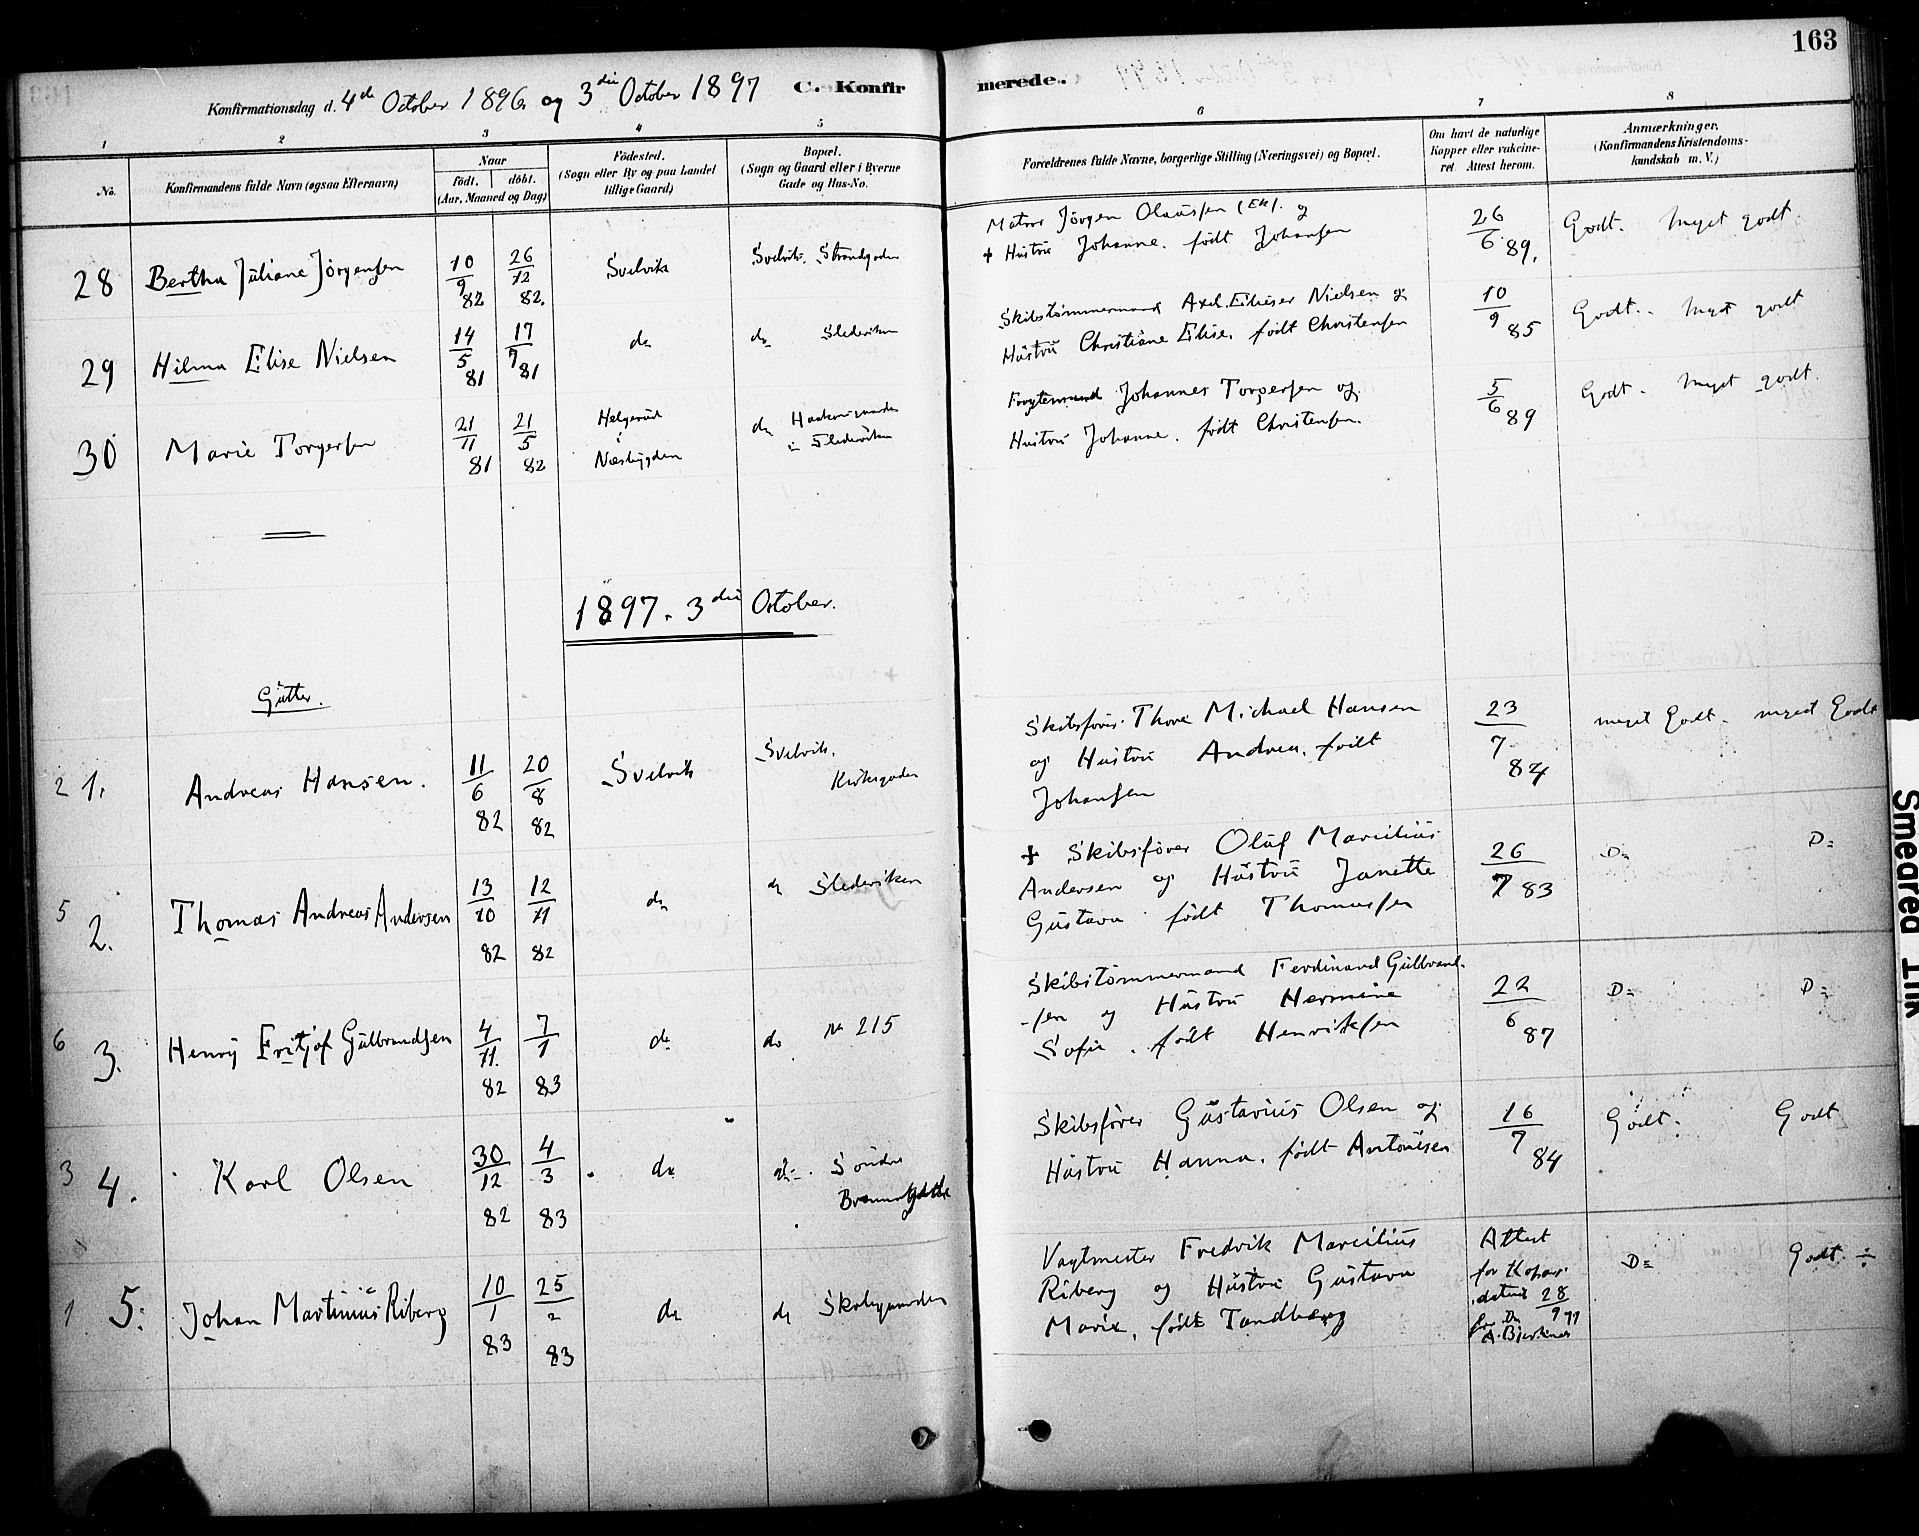 163
Konfirmationsdag d. 4de October 1896 og 3die October 1897 C. Konfirmerede.
1 2 3 4 5 6 7 8
No.
Konfirmandens fulde Navn (ogsaa Efternavn)
Naar
født. døbt.
(Aar, Maaned og Dag)
Fødested.
(Sogn eller By og paa Landet
tillige Gaard)
Bopæl.
(Sogn og Gaard eller i Byerne
Gade og Hus-No.
Forældrenes fulde Navne, borgerlige Stilling (Næringsvei) og Bopæl.
Om havt de naturlige
Kopper eller vakcine-
ret. Attest herom.
Anmærkninger.
(Konfirmandens Kristendoms-
kundskab m. V.)
28 Bertha Juliane Jörgensen 10/9 82 26/12 82. Svelvik Svelvik. Strandgaden
Matros Jörgen Olaussen (Enk). og
+ Hustru Johanne. født Johansen
26/6 89. Godt. Meget godt.
29 Hilma Elise Nielsen 14/5 81 17/7 81 do do Slederviken
Skibstømmermand Axel Elieser Nielsen og
Hustru Christiane Elise, født Christensen
10/9 85 Godt. Meget godt
30 Marie Torgersen 21/11 81 21/5 82
Helgerud
i
Næsbygden
do Haakonsgaarden
i Slederviken
Johannes Torgersen og
Hustru Johanne. født Christensen.
5/6 89 Godt. Meget godt.
1897. 3die October.
Gutter.
2 1. Andreas Hansen. 11/6 82 20/8 82 Svelvik Svelvik.
Kirkegaden
Skibsfører Thore Michael Hansen
og Hustru Andrea, født
Johansen
23/7 84 meget Godt. meget Godt
5 2. Thomas Andreas Andersen 13/10 82 12/11 82 do do Slederviken
+ Skibsfører Oluf Marcilius
Andersen og Hustru Janette
Gustava født Thomassen
26/7 83 D= D=
6 3. Henry Fritjof Gulbrandsen 4/11. 82 7/1 83 do do No 215
Skibstømmermand Ferdinand Gulbrand-
-sen og Hustru Hermine
Sofie. født Henriksen
22/6 87 D= D=
3 4. Karl Olsen 30/12 82 4/3 83 do do Søndre
Skibsfører Gustavius Olsen og
Hustru Hanna. født Antonisen
16/7 84 Godt. Godt
1 5. Johan Martinius Riberg 10/1 83 25/2 83 do do Skolegaarden
Vagtmester Fredrik Marcilius
Riberg og Hustru Gustava
Marie, født Tandberg
Attest
for Kopper
dateret 28/9 97
fra Dr
A. Bjerknes
D= Godt ÷
Smeared Ink